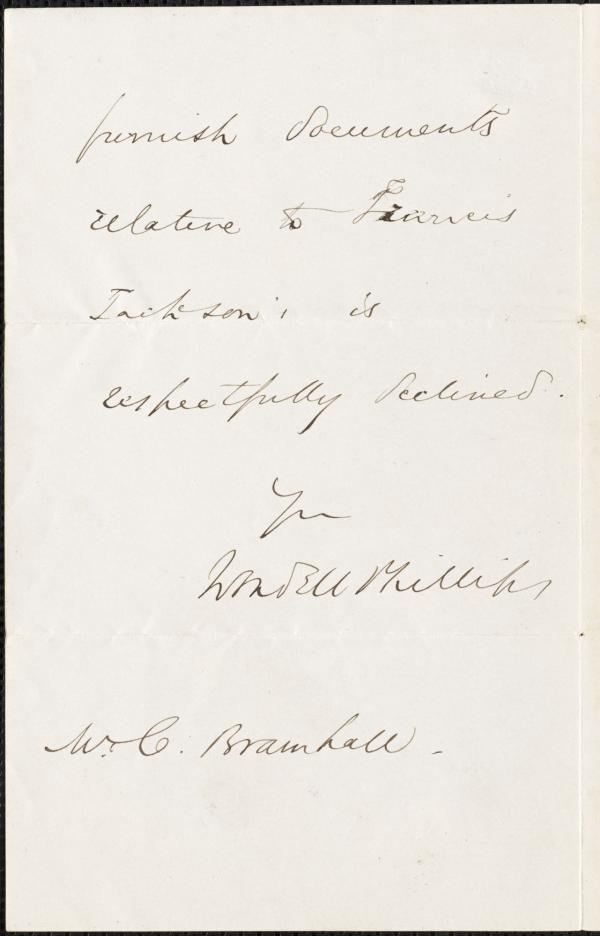 furnish documents
relative to Francis
Jackson, is
respectfully declined.
Yr
Wendell Phillips
Mr. C. Bramhall.